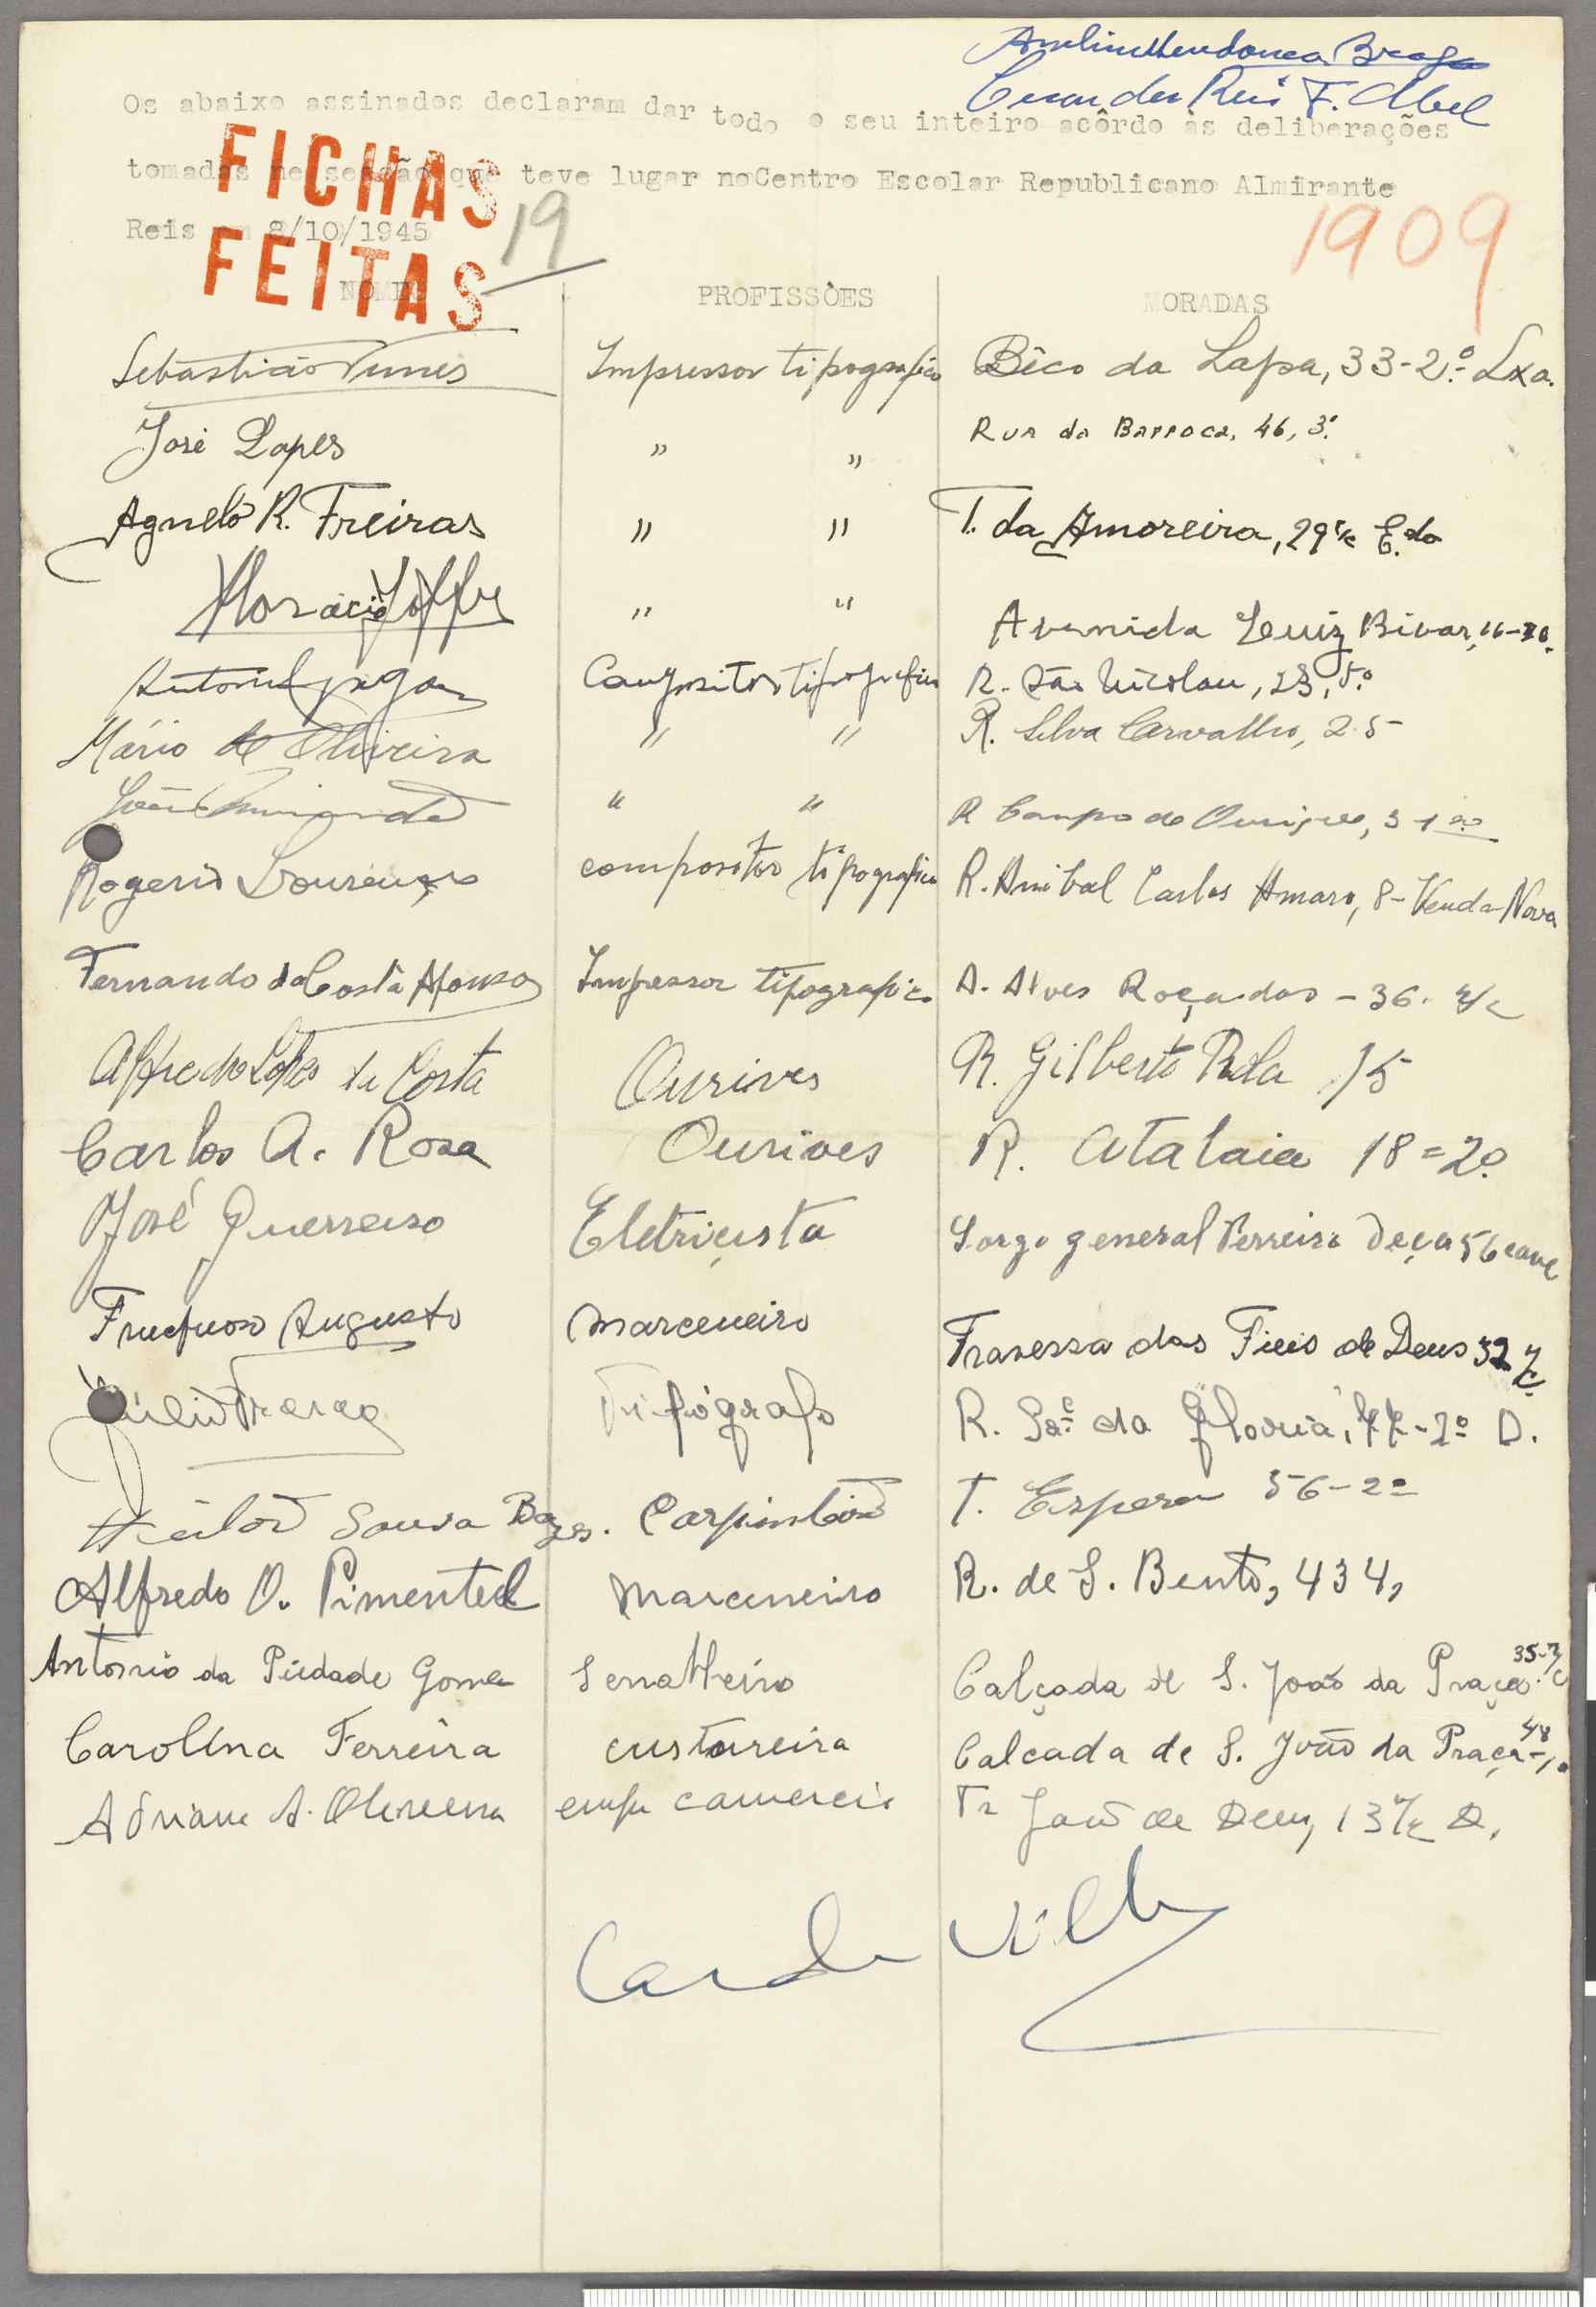 Mendonça Braga
Cesar dos Reis F. Abel
Os abaixo assinados declaram dar todo o seu inteiro acôrdo às deliberações
FICHAS
tomadas na sessão que teve lugar noCentro Escolar Republicano Almirante
19
1909
Reis em 8/10/1945
FEITAS
NOMES PROFISSÕES MORADAS
Sebastião Nunes Impressor tipografico Bêco da Lapa, 33-2.º Lxa.
José Lopes " " Rua da Barroca, 46, 3.º
Agnelo R. Freiras " " T. da Amoreira, 29 r/c E.do
Horácio " " Avenida Luiz Bivar,
Compositor tipografico R. São Nicolau, 23, 5.º
Mário de Oliveira " " R. Silva Carvalho, 25
João " " R Campo de Ourique, 31
Rogerio Lourenço compositor tipografico R. Anibal Carlos Amaro, 8-Venda Nova
Fernando da Costa Afonso Impressor tipografico A. Alves Roçadas - 36. r/c
Alfredo Lopes da Costa Ourives R. Gilberto Rola 15
Carlos A. Rosa Ourives R. Atalaia 18=2º
José Guerreiro Eletriçista Largo general Perreira Deça 56 cave
Fructuoso Augusto Marceneiro Travessa dos Fieis de Deus 32 r/c
Tipógrafo R. Sª. da Gloria, 77-2º D.
Sousa Carpinteiro T. Espera 56-2º
Alfredo O. Pimentel Marceneiro R. de S. Bento, 434,
Antonio da Piedade Gomes Serralheiro Calçada de S. João da Praça 35-r/c
Carolina Ferreira custoureira Calcada de S. João da Praça 48-1º
Adriano A. Oliveira emp comercio Tr João de Deus, 13 r/c D.